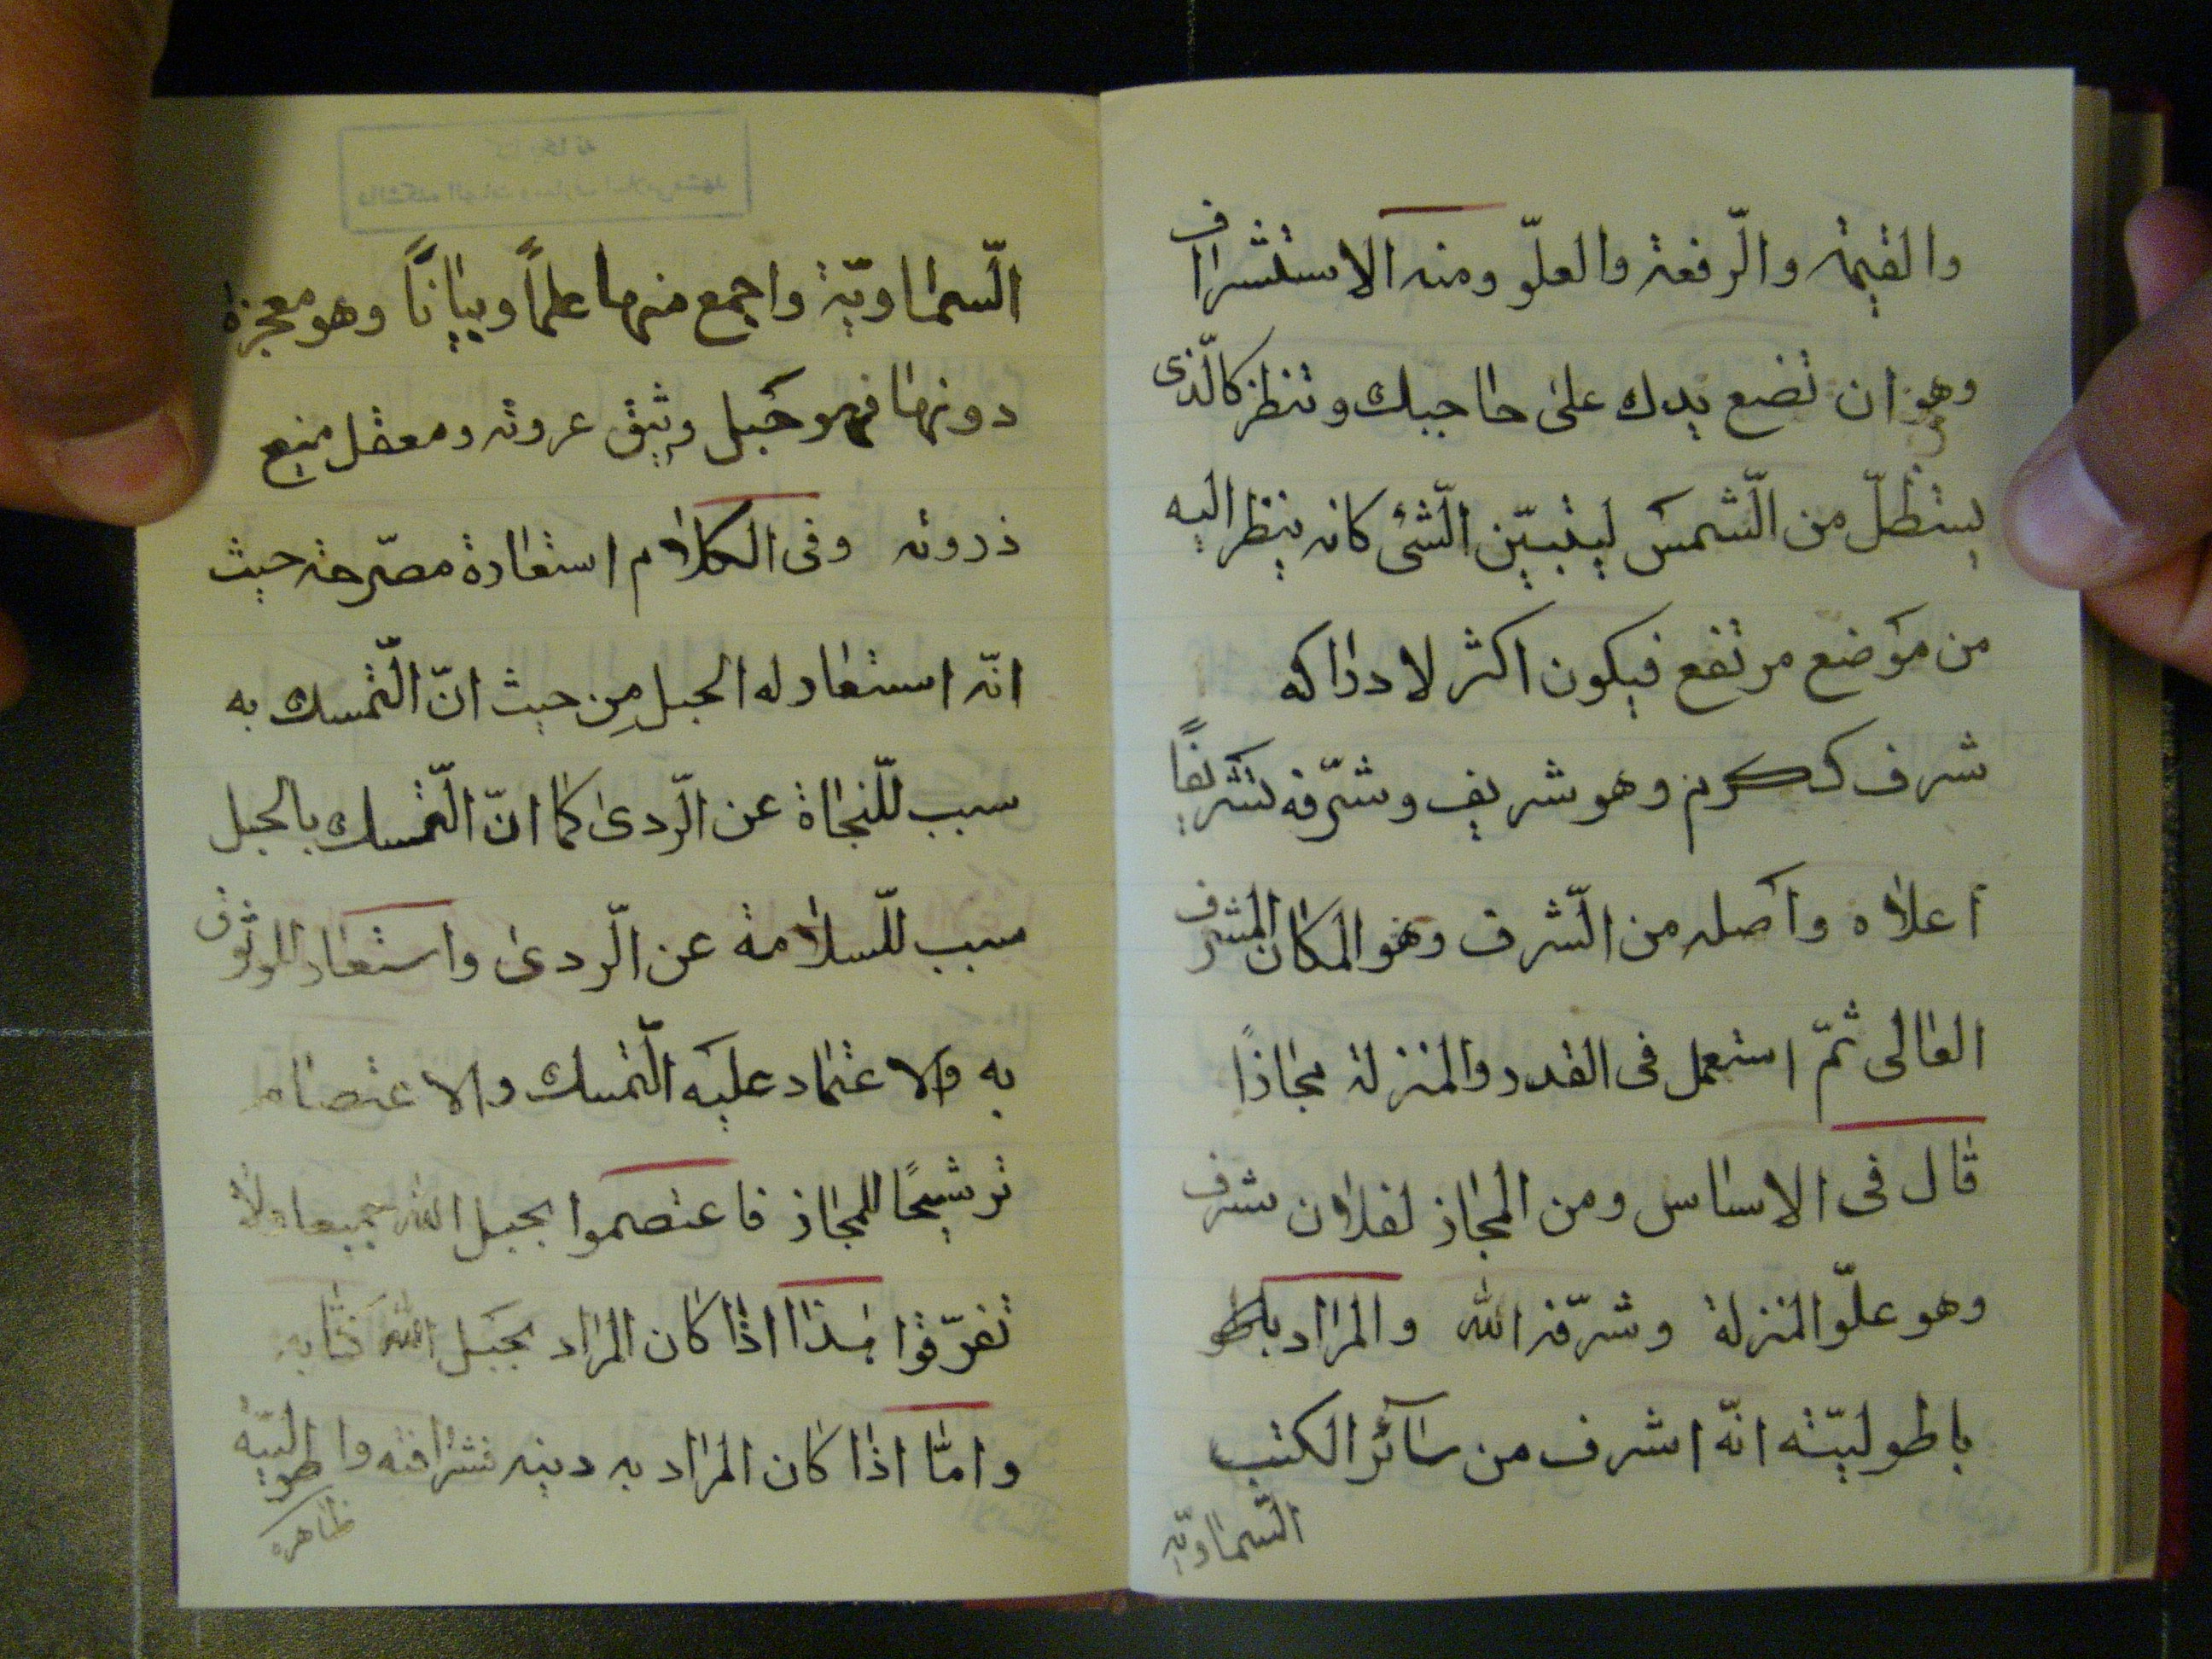 والقيمة والرّفعة والعلوّ ومنه الاستشراف
وهو ان تضع يدك على حاجبك وتنظر كالّذى
يستظلّ من الشّمس ليتبيّن الشّئ كانه ينظر اليه
من موضع مرتفع فيكون اكثر لادراكه
شرف ككرم وهو شريف وشرّفه تشريفًا
اعلاه واصله من الشّرف وهو المكان المشرف
العالى ثمّ استعمل فى القدر والمنزلة مجازًا
قال فى الاساس ومن المجاز لفلان شرف
وهو علوّ المنزلة وشرّفه الله والمراد
باطوليّته انّه اشرف من سآئر الكتب
السّماويّة
السّماويّة واجمع منها علمًا وبيانًا وهو معجزة
دونها فهو حبل وثيق عروته ومعقل منيع
ذروته وفى الكلام استعارة مصرّحة حيث
انّه استعار له الحبل من حيث انّ التّمسك به
سبب للنّجاة عن الرّدى كما انّ التّمسك بالحبل
سبب للسّلامة عن الرّدى واستعار للوثوق
به والاعتماد عليه التّمسك والاعتصام
ترشيحًا للمجاز فاعتصموا بحبل الله جميعا ولا
تفرّقوا هذا اذا كان المراد بحبل الله كتابه
وامّا اذا كان المراد به دينه فشرافته واطوليّته
ظاهرة